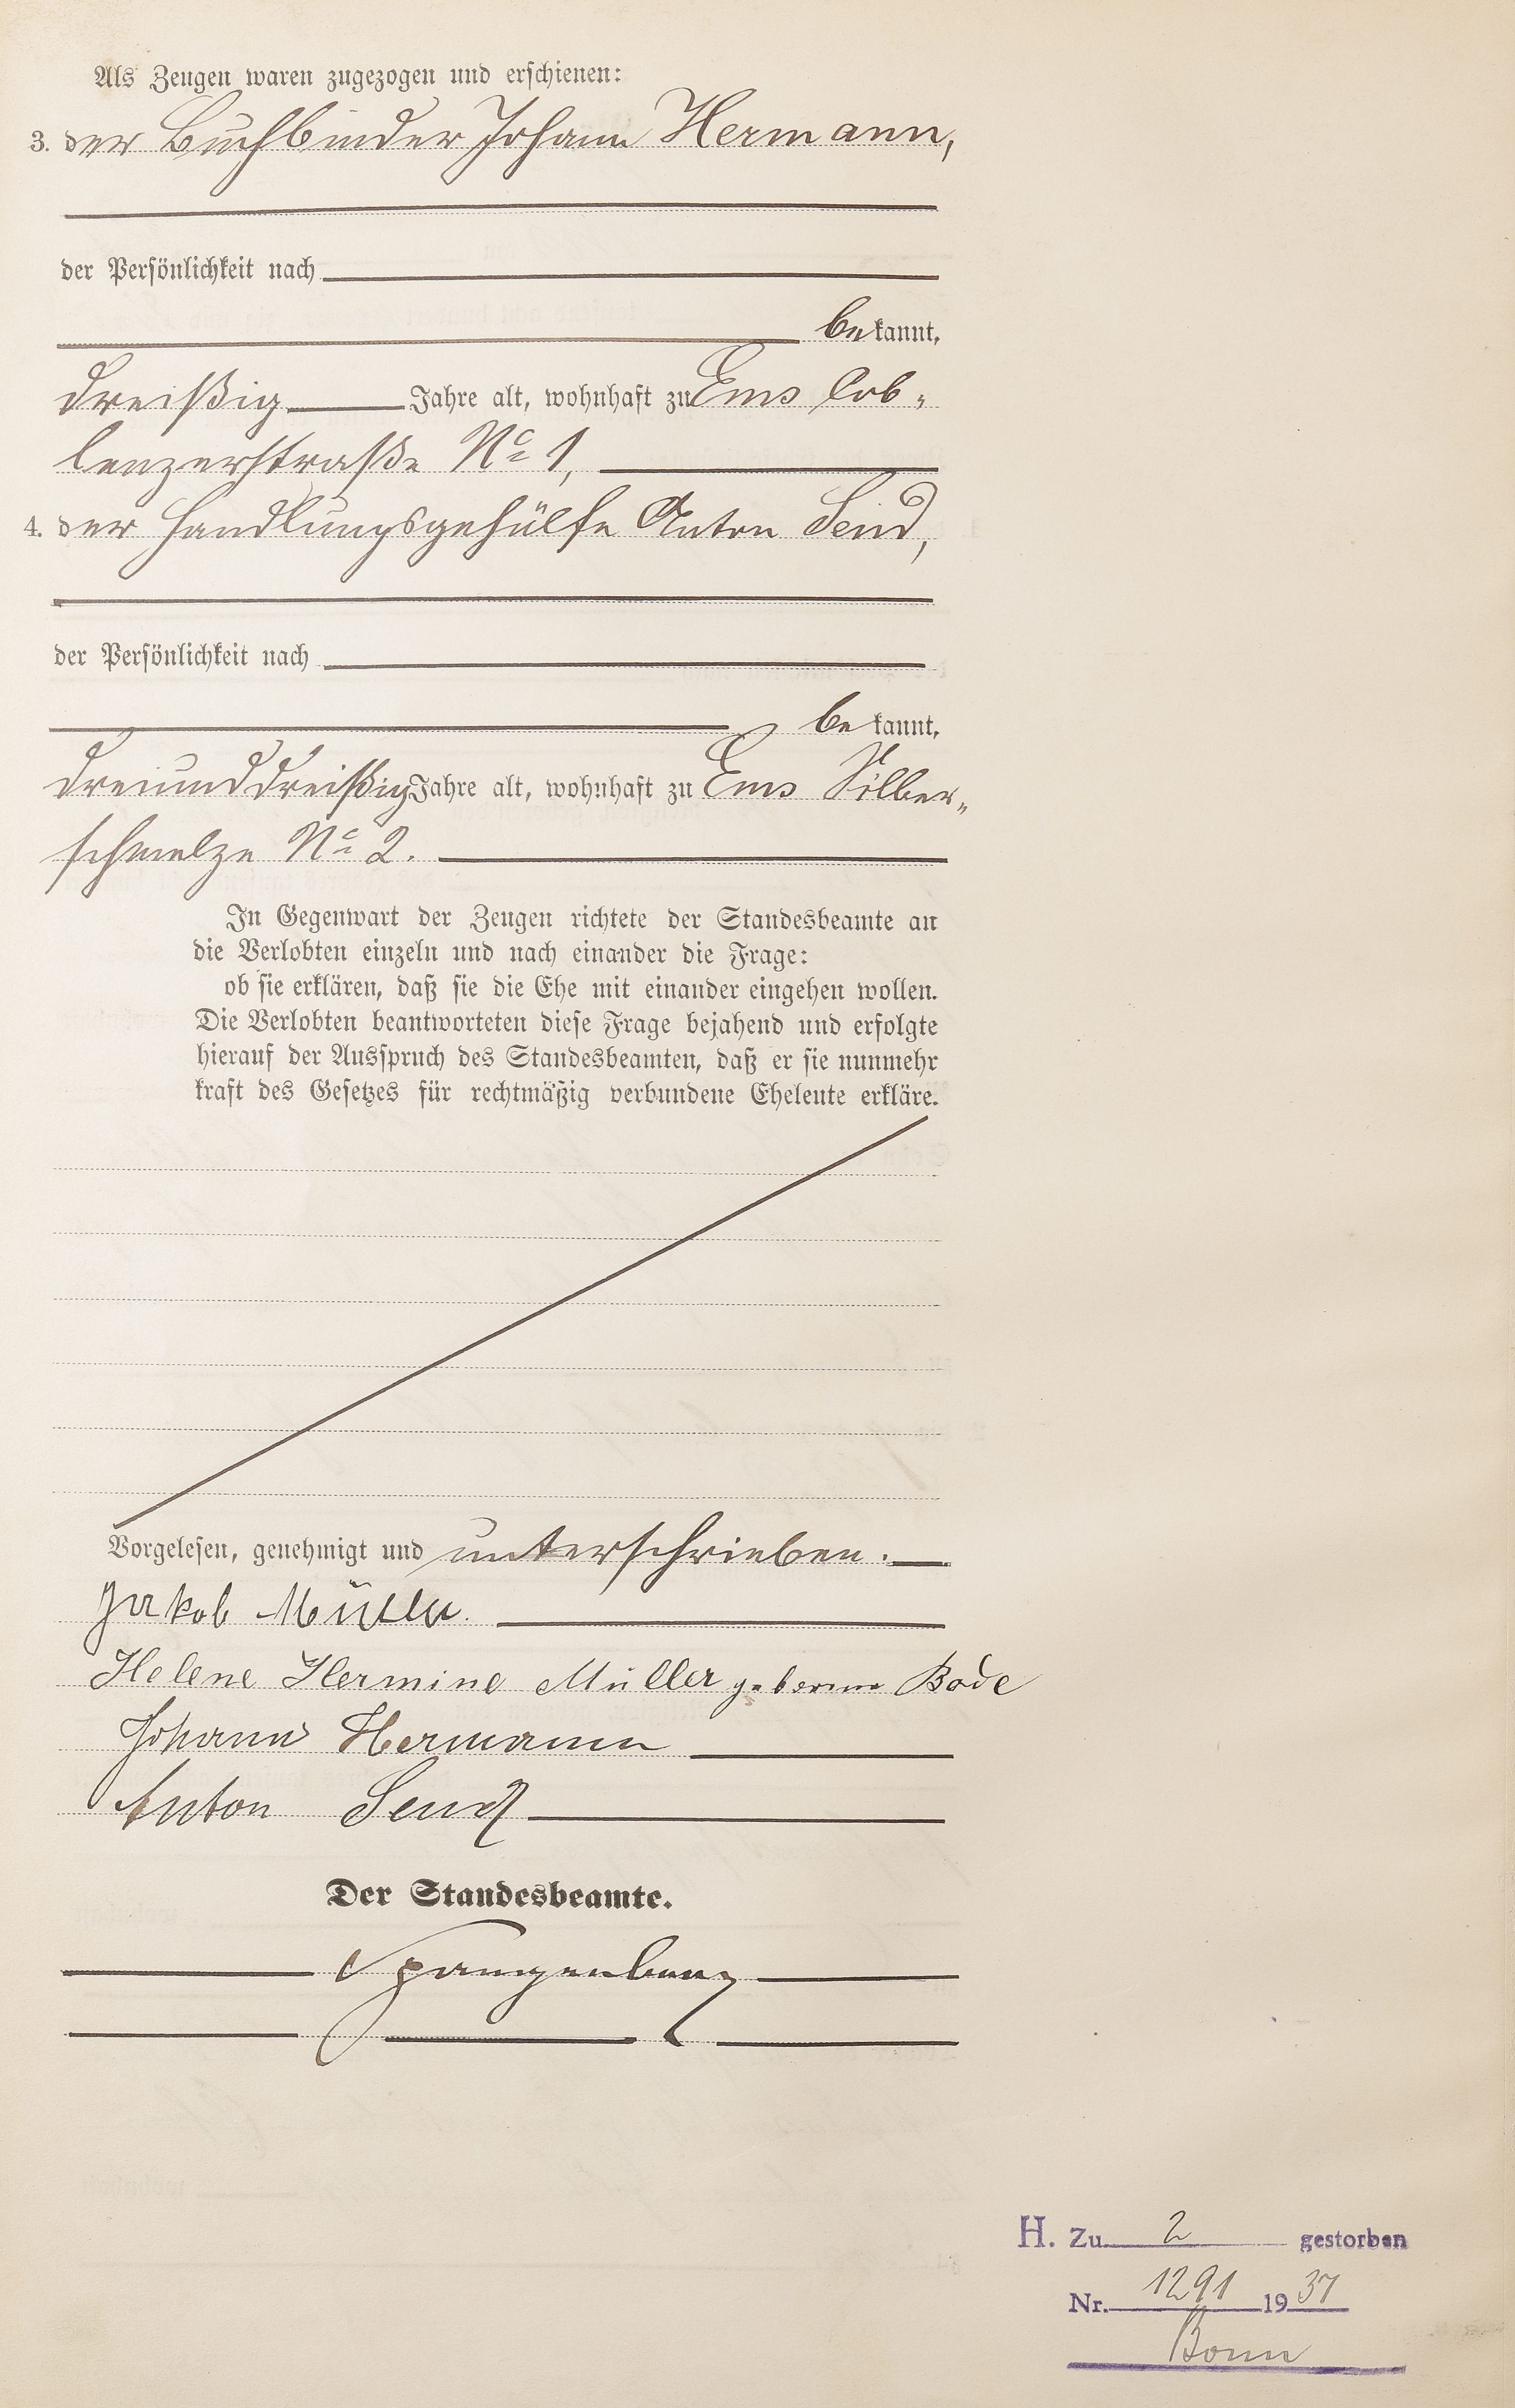 Als Zeugen waren zugezogen und erschienen:
3. der Buchbinder Johann Hermann,
der Persönlichkeit nach
bekannt,
dreißig Jahre alt, wohnhaft zu Ems Cob-
lenzerstraße No 1,
4. der Handlungsgehülfe Anton Seud,
der Persönlichkeit nach
bekannt,
dreiunddreißig Jahre alt, wohnhaft zu Ems Silber-
schmelze No 2.
In Gegenwart der Zeugen richtete der Standesbeamte an
die Verlobten einzeln und nach einander die Frage:
ob sie erklären, daß sie die Ehe mit einander eingehen wollen.
Die Verlobten beantworteten diese Frage bejahend und erfolgte
hierauf der Ausspruch des Standesbeamten, daß er sie nunmehr
kraft des Gesetzes für rechtmäßig verbundene Eheleute erkläre.
Vorgelesen, genehmigt und unterschrieben.
Jakob Müller.
Helene Hermine Müller geborene Bode
Johann Hermann
Anton Seud
Der Standesbeamte.
Spangenberg
H. Zu 2 gestorben
Nr. 1291 1937
Bonn